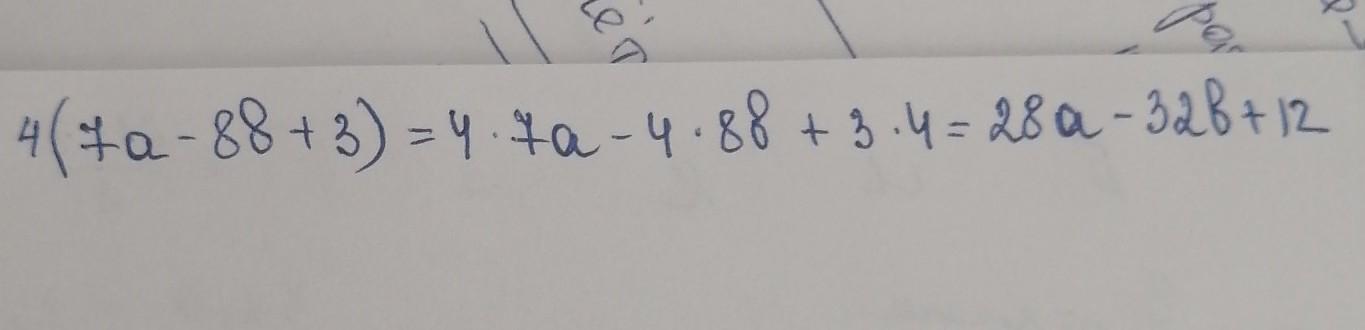 4(7a - 8b + 3) = 4 · 7a - 4 · 8b + 3 · 4 = 28a - 32b + 12